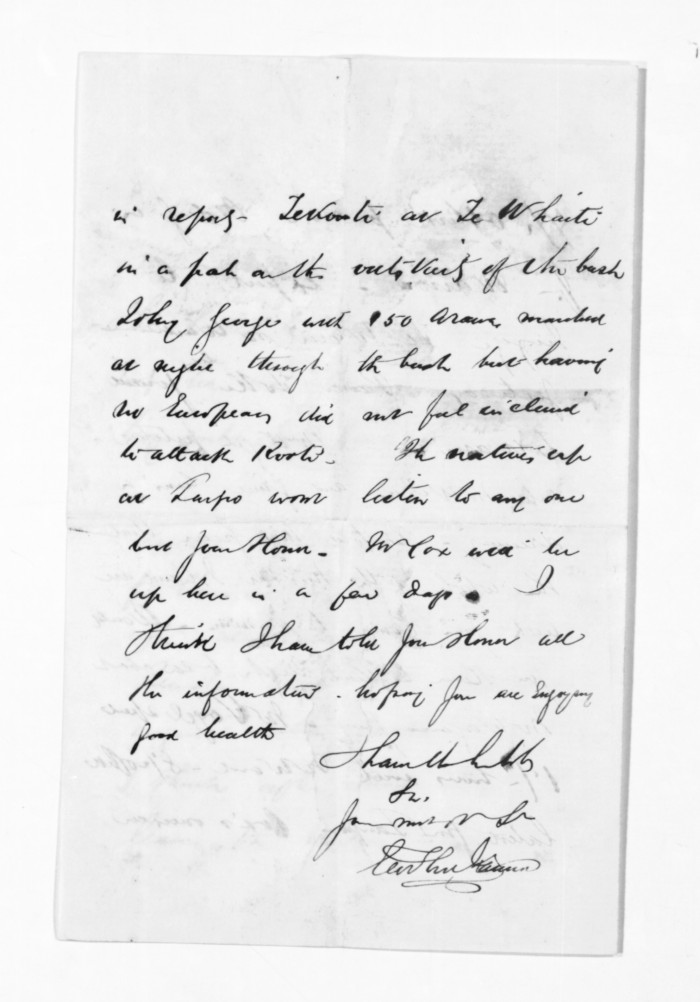 is report TeKooti at Te Whaiti
in a pah on the outskirts of the bush
John George with 150 Arawa marched
at night through the bush but having
no Europeans did not feel inclined
to attack Kooti. The natives up
at Taupo wont listen to any one
but Your Honor. Mr Cox will be
up here in a few days. I
think I have told Your Honor all
the information. hoping you are Enjoying
good health
I have the honor to be
Sir
Your most obt St